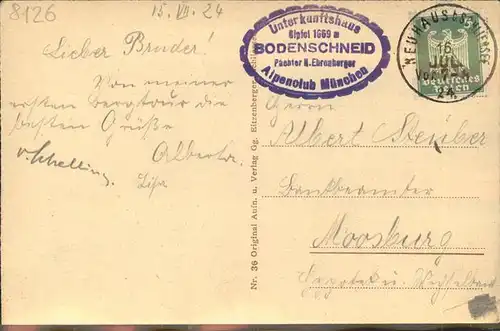 8126
15. VII. 24
Lieber Bruder!
Von meiner
ersten Bergtour die
besten Grüße
Alberta.
v. Schelling.
Unterkunftshaus
Gipfel 1669 m
BODENSCHNEID
Pächter H. Ehrenberger
Alpenclub München
NEUHAUS (SCHLIERSEE)
16
JUL.
Vorm.
24
Deutsches
Reich
Nr. 36 Original Aufn. u. Verlag Gg. Eitzenberger
Herrn
Albert Steuber
Bankbeamter
Moosburg